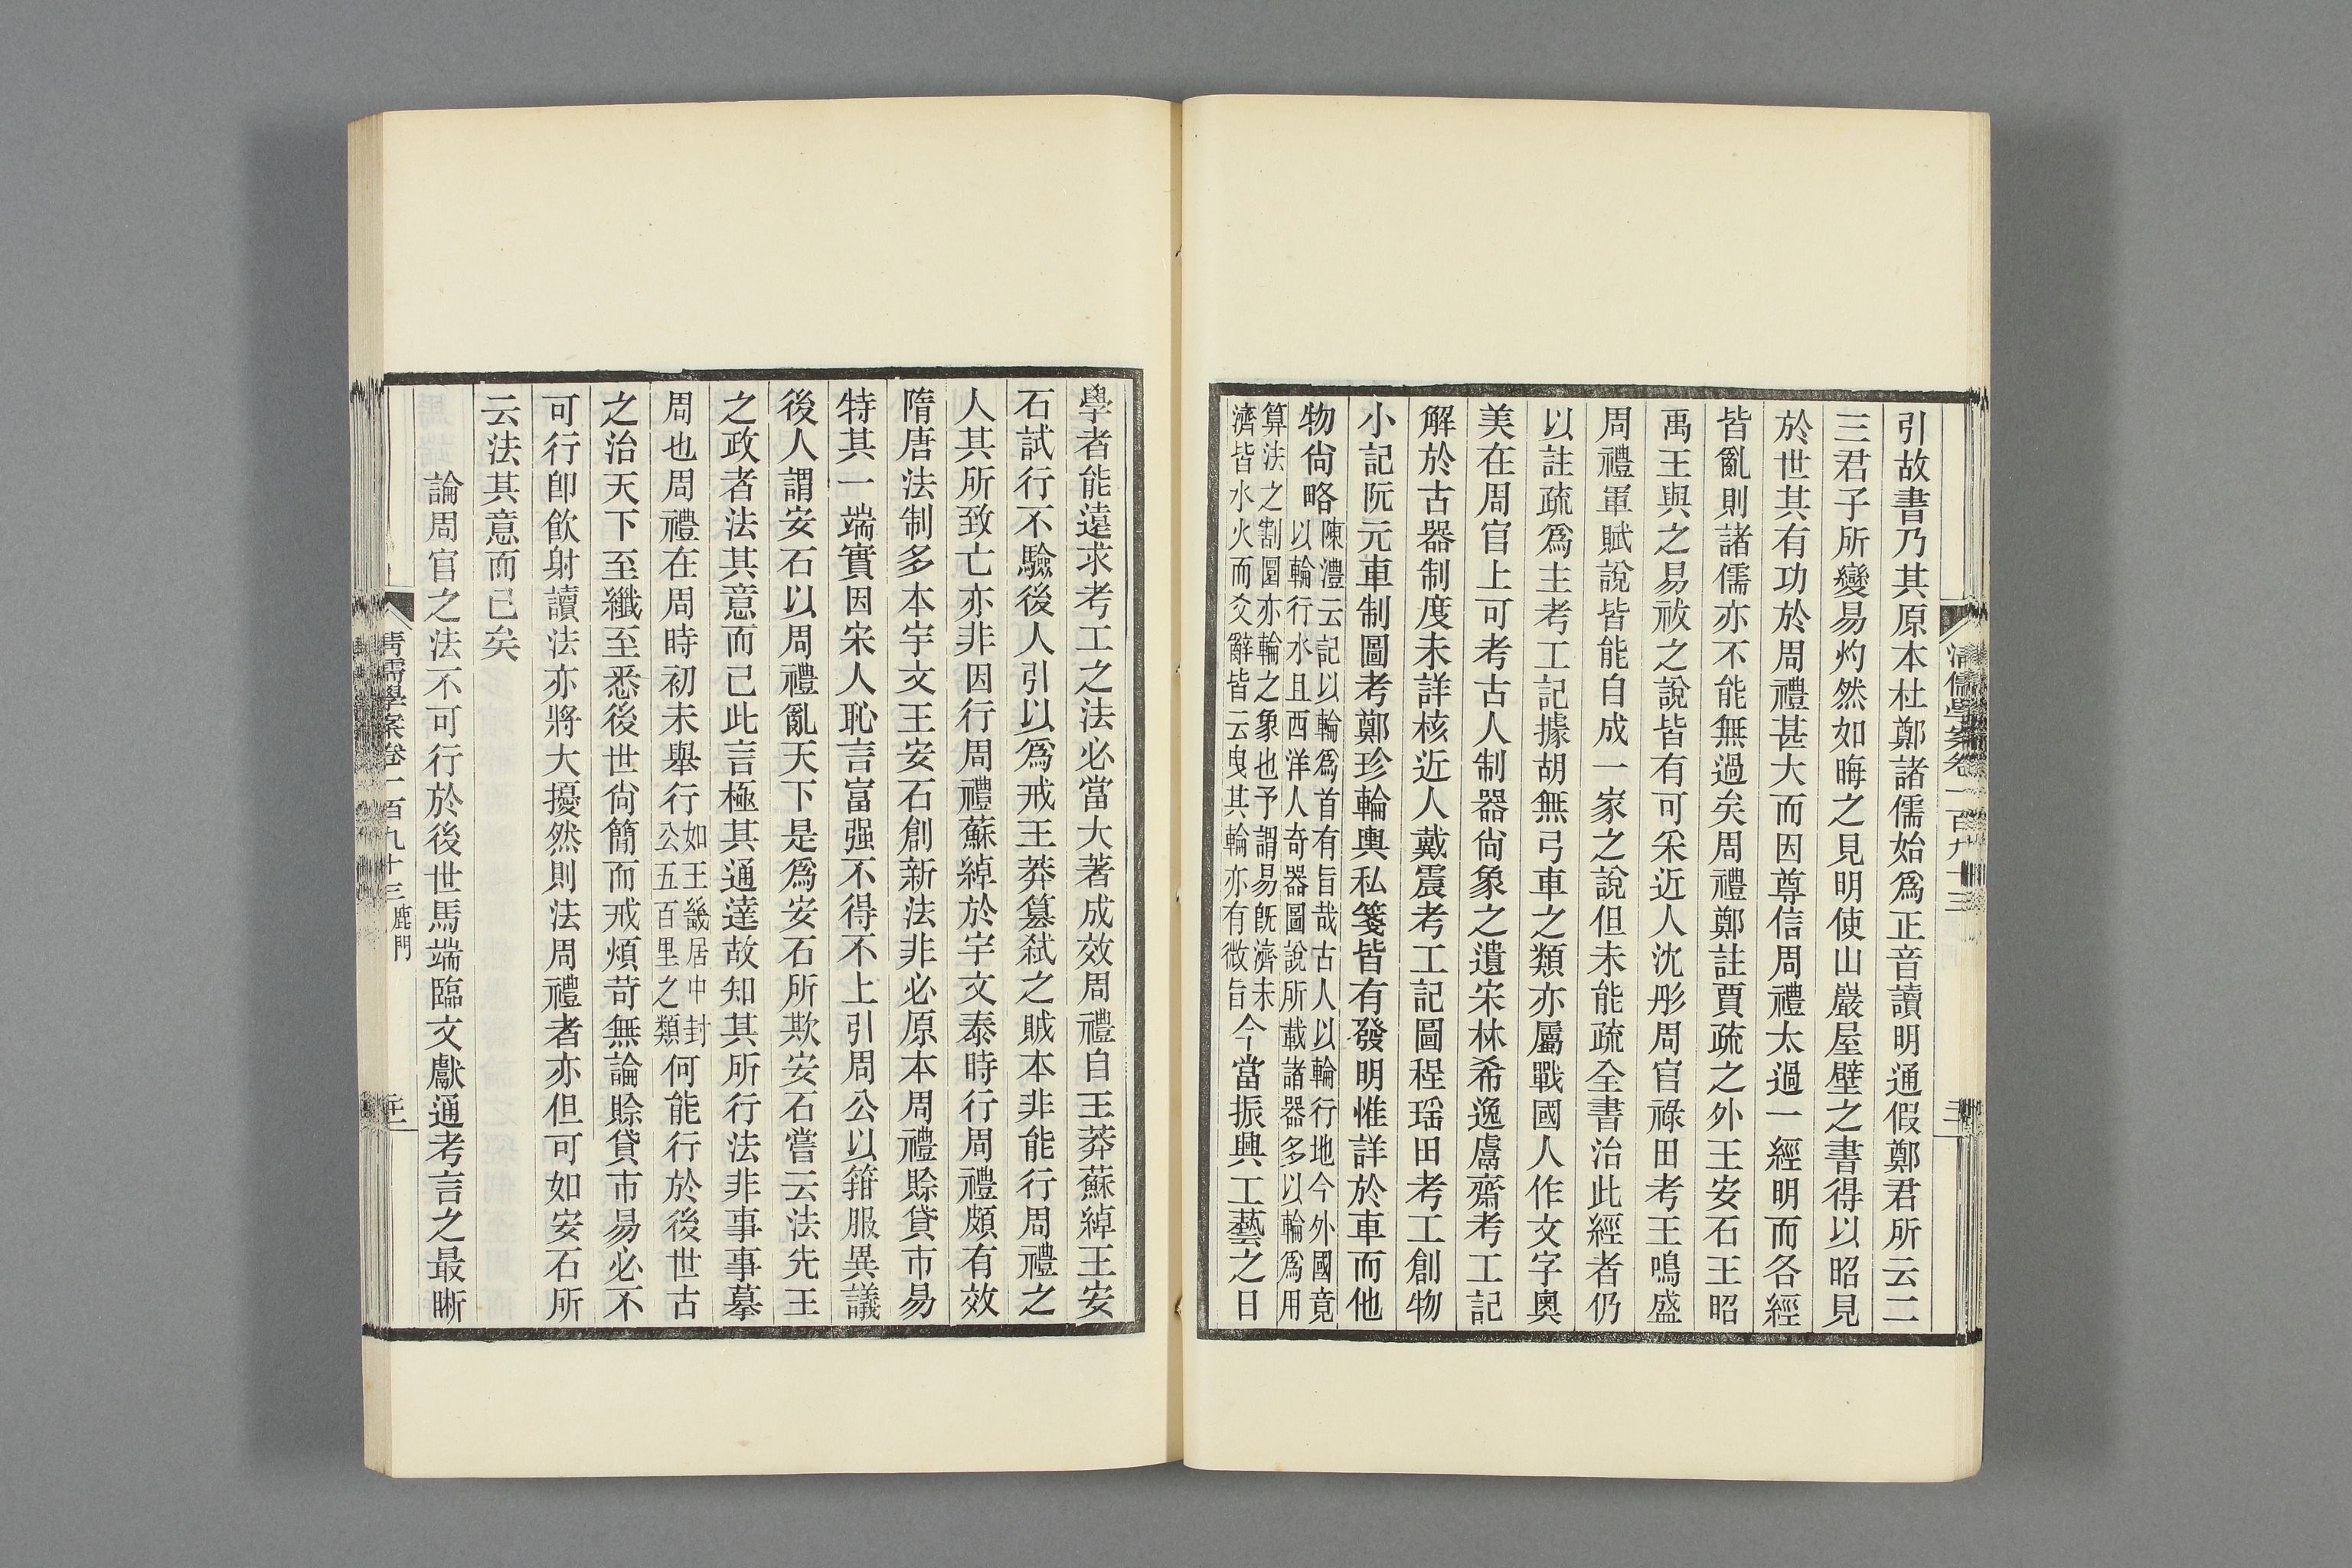 引故書乃其原本杜鄭諸儒始爲正音讀明通假鄭君所云二
三君子所變易灼然如晦之見明使山巖屋壁之書得以昭見
於世其有功於周禮甚大而因尊信周禮太過一經明而各經
皆亂則諸儒亦不能無過矣周禮鄭註賈疏之外王安石王昭
禹王與之易祓之說皆有可采近人沈彤周官祿田考王鳴盛
周禮軍賦說皆能自成一家之說但未能疏全書治此經者仍
以註疏爲主考工記據胡無弓車之類亦屬戰國人作文字奧
美在周官上可考古人制器尙象之遺宋林希逸鬳齋考工記
解於古器制度未詳核近人戴震考工記圖程瑤田考工創物
小記阮元車制圖考鄭珍輪輿私箋皆有發明惟詳於車而他
物尙略陳澧云記以輪爲首有旨哉古人以輪行地今外國竟
以輪行水且西洋人奇器圖說所載諸器多以輪爲用
算法之割圜亦輪之象也予謂易旣濟未
濟皆水火而爻辭皆云曳其輪亦有微旨今當振興工藝之日
清儒學案卷一百九十三
學者能遠求考工之法必當大著成效周禮自王莽蘇綽王安
石試行不驗後人引以爲戒王莽簒弒之賊本非能行周禮之
人其所致亡亦非因行周禮蘇綽於宇文泰時行周禮頗有效
隋唐法制多本宇文王安石創新法非必原本周禮賒貸市易
特其一端實因宋人恥言富强不得不上引周公以箝服異議
後人謂安石以周禮亂天下是爲安石所欺安石嘗云法先王
之政者法其意而已此言極其通達故知其所行法非事事摹
周也周禮在周時初未舉行如王畿居中封
公五百里之類何能行於後世古
之治天下至纖至悉後世尙簡而戒煩苛無論賒貸市易必不
可行卽飮射讀法亦將大擾然則法周禮者亦但可如安石所
云法其意而已矣
論周官之法不可行於後世馬端臨文獻通考言之最晰
清儒學案卷一百九十三 鹿門